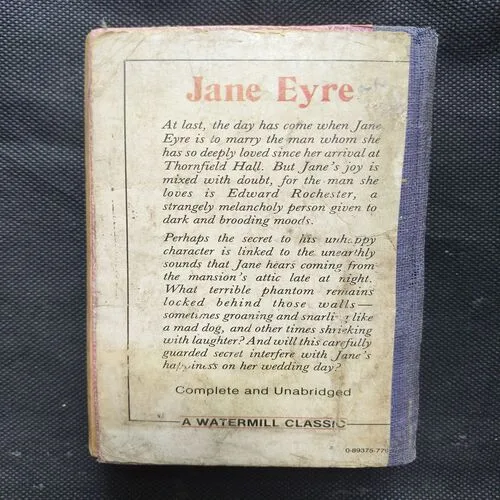 Jane Eyre
At last, the day has come when Jane
Eyre is to marry the man whom she
has so deeply loved since her arrival at
Thornfield Hall. But Jane's joy is
mixed with doubt, for the man she
loves is Edward Rochester, a
strangely melancholy person given to
dark and brooding moods.
Perhaps the secret to his unhappy
character is linked to the unearthly
sounds that Jane hears coming from
the mansion's attic late at night.
What terrible phantom remains
locked behind those walls—
sometimes groaning and snarling like
a mad dog, and other times shrieking
with laughter? And will this carefully
guarded secret interfere with Jane's
happiness on her wedding day?
Complete and Unabridged
A WATERMILL CLASSIC